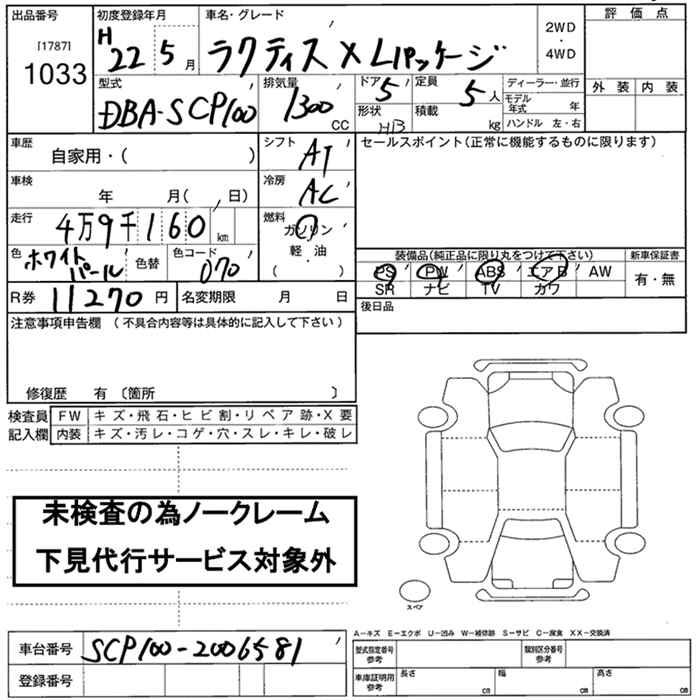 出品番号
[1787]
1033
初度登録年月
H 22 5 月
車名・グレード
ラクティス X Lパッケージ
2WD
・
4WD
評価点
外装 内装
型式
DBA-SCP100
排気量
1300
CC
ドア 5
形状 HB
定員 5 人
積載 kg
ディーラー・並行
モデル年式 年
ハンドル 左・右
車歴
自家用・( )
シフト AT
セールスポイント(正常に機能するものに限ります)
車検 年 月( 、日)
冷房 AC
走行 4万9千160 km
燃料
ガソリン
軽・油
( )
色 ホワイトパール 色替
色コード 070
装備品(純正品に限り丸をつけて下さい)
新車保証書
PS PW ABS エアB AW
SR ナビ TV カワ
有・無
R券 11270 円 名変期限 月 日
後日品
注意事項申告欄 (不具合内容等は具体的に記入して下さい)
修復歴 有 〔箇所 〕
検査員
記入欄
FW キズ・飛石・ヒビ割・リペア跡・X要
内装 キズ・汚レ・コゲ・穴・スレ・キレ・破レ
未検査の為ノークレーム
下見代行サービス対象外
スペア
A-キズ E-エクボ U-凹み W-補修跡 S-サビ C-腐食 XX-交換済
車台番号 SCP100-2006581
登録番号
型式指定番号
参考
類別区分番号
参考
車庫証明用
参考
長さ cm 幅 cm 高さ cm